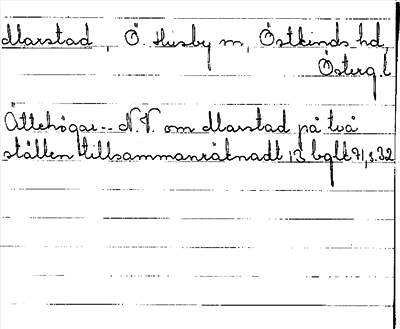 Marstad, Ö. Husby sn, Östkinds hd,
Österg. l
Ättehögar -- N.V. om Marstad på två
ställen tillsammanräknadt 13 bglt 91, s. 32